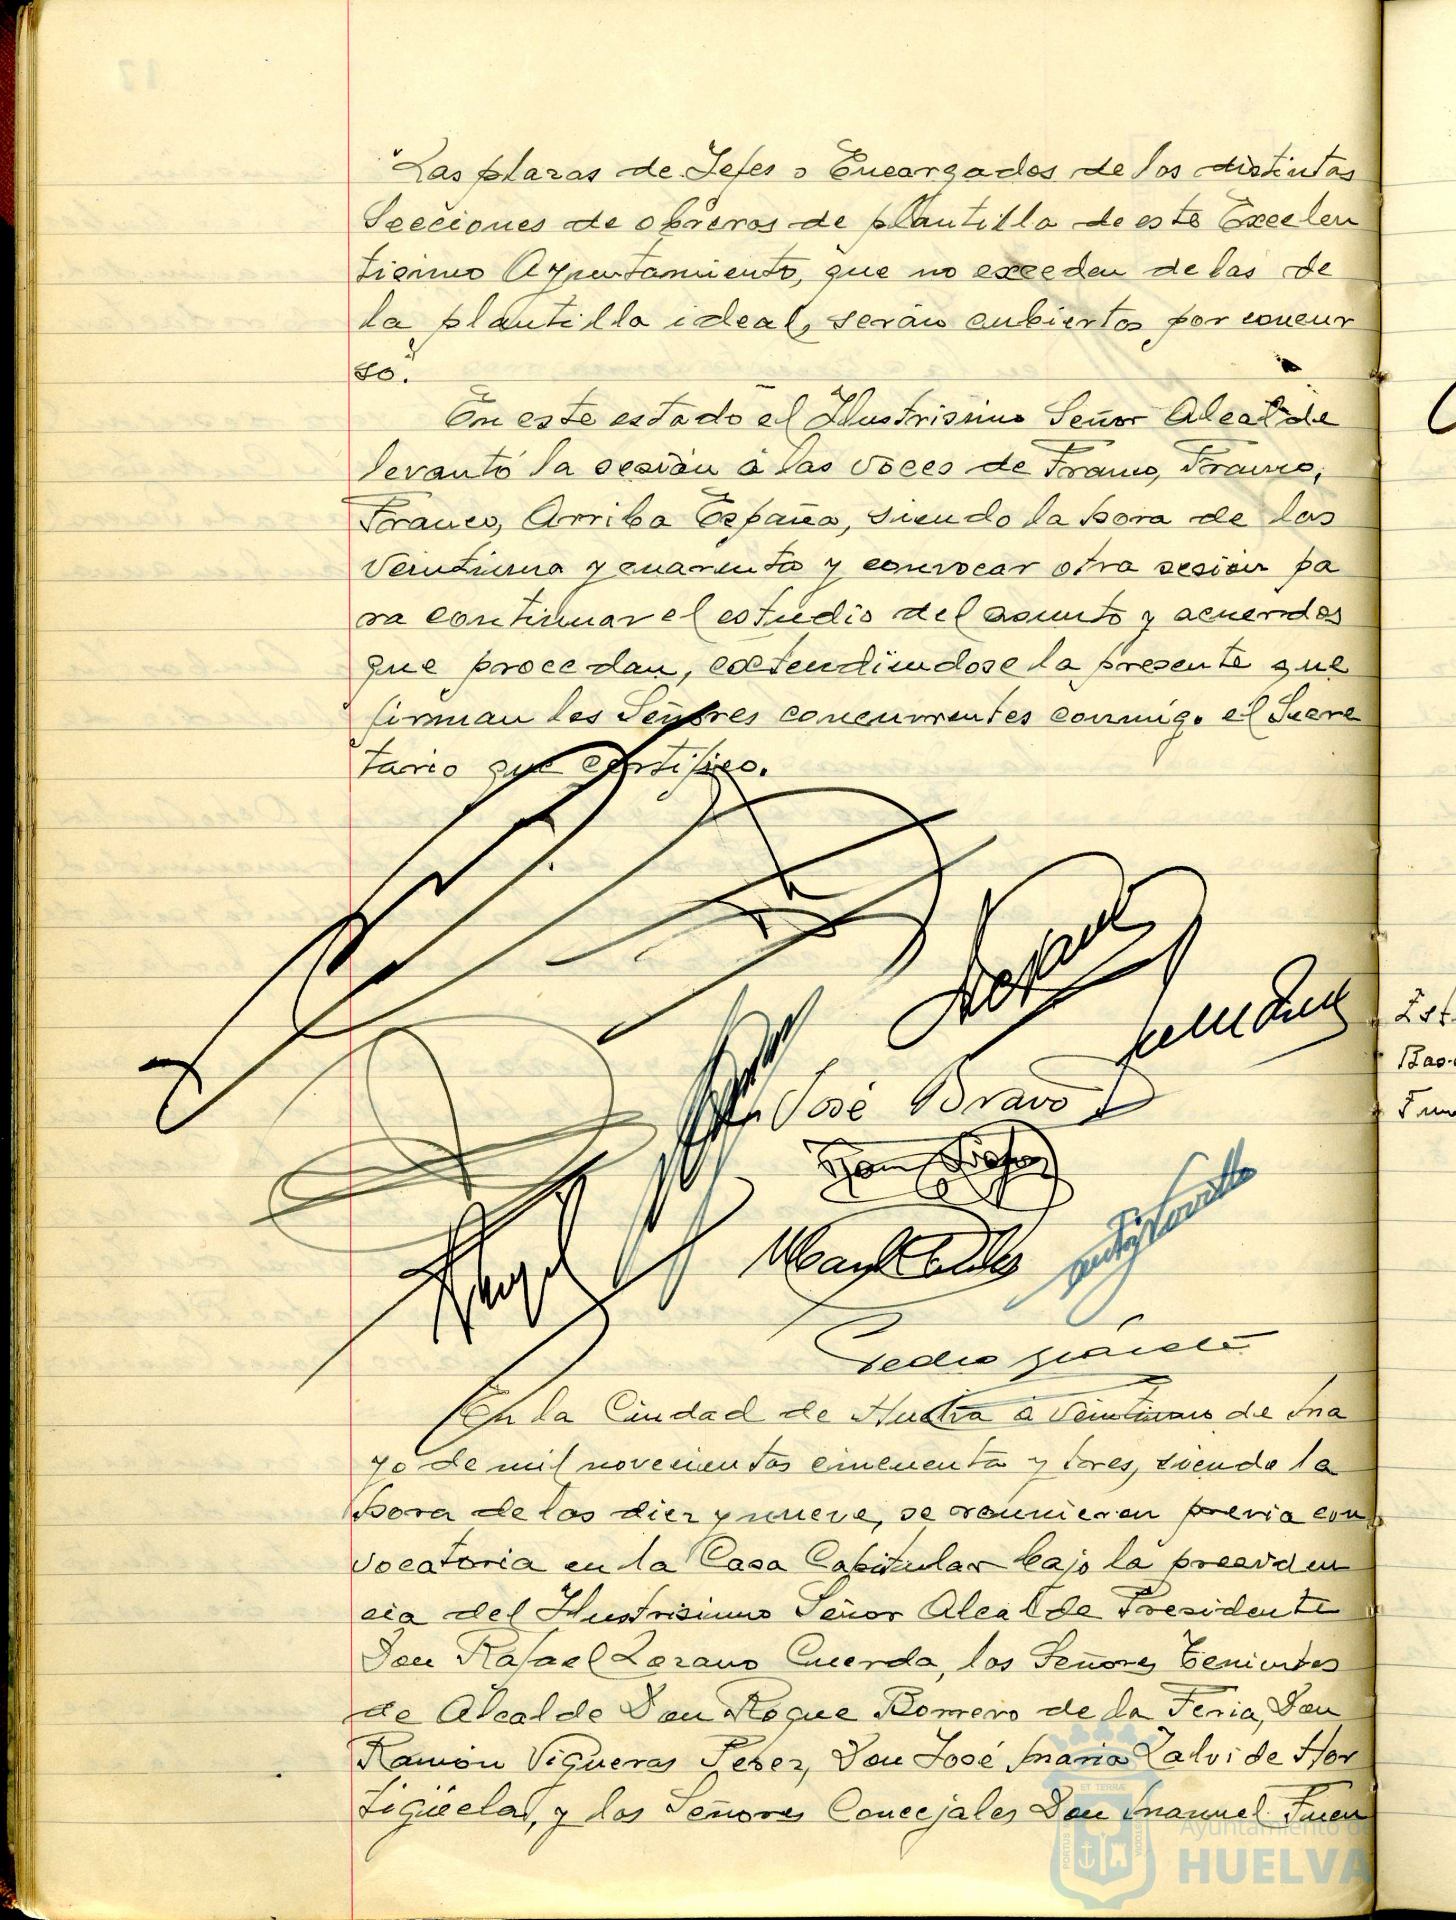 "Las plazas de Jefes o Encargados de las distintas
Secciones de obreros de plantilla de este Excelen
tisimo Ayuntamiento, que no exceden de las de
la plantilla ideal, serán cubiertas por concur
so."
En este estado el Ilustrisimo Señor Alcalde
levantó la sesión a las voces de Franco, Franco,
Franco, Arriba España, siendo la hora de las
veintiuna y cuarenta y convocar otra sesión pa
ra continuar el estudio del asunto y acuerdos
que procedan, extendiendose la presente que
firman los Señores concurrentes conmigo el Secre
tario que certifico.
José Bravo
Antº Morrillo
Pedro
En la Ciudad de Huelva a veintiuno de ma
yo de mil novecientos cincuenta y tres, siendo la
hora de las diez y nueve, se reunieron previa con
vocatoria en la Casa Capitular bajo la presiden
cia del Ilustrisimo Señor Alcalde Presidente
Don Rafael Lozano Cuerda, los Señores Tenientes
de Alcalde Don Roque Borrero de la Feria, Don
Ramón Vigueras Perez, Don José Maria Zalvide Hor
tigüela, y los Señores Concejales Don Manuel Fuen
Ayuntamiento de
HUELVA